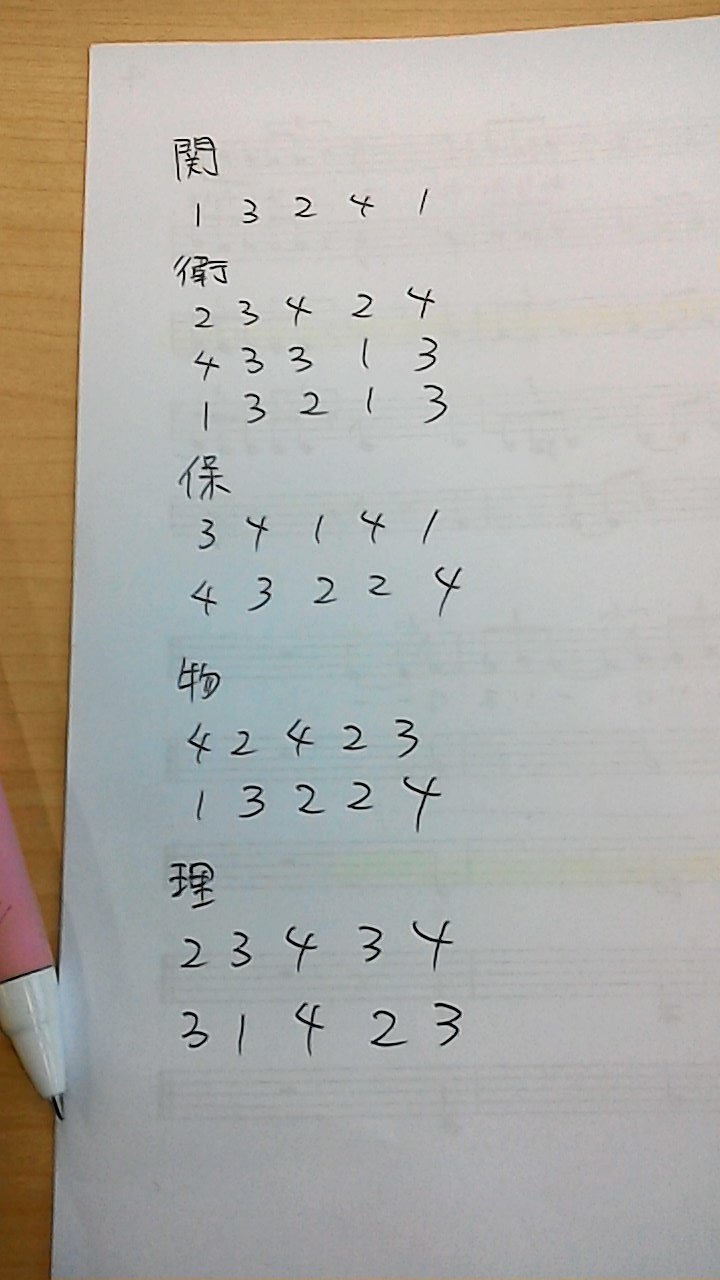 関
1 3 2 4 1
衛
2 3 4 2 4
4 3 3 1 3
1 3 2 1 3
保
3 4 1 4 1
4 3 2 2 4
物
4 2 4 2 3
1 3 2 2 4
理
2 3 4 3 4
3 1 4 2 3